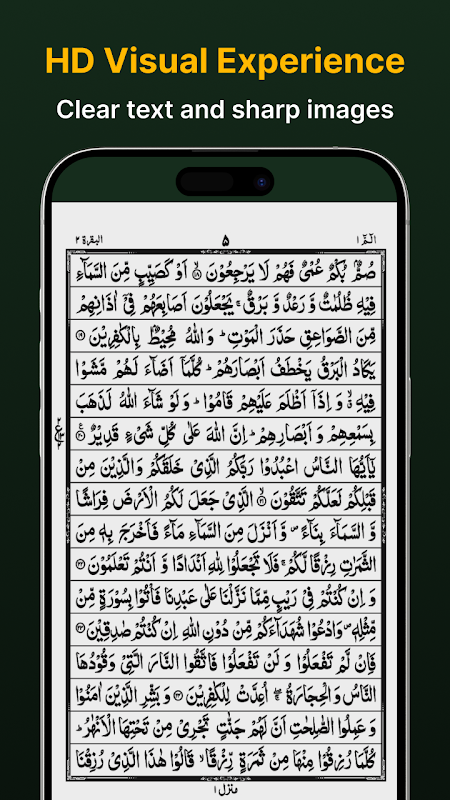 HD Visual Experience
Clear text and sharp images
الٓمّٓ ١
٥
البقرة ٢
صُمٌّۢ بُكْمٌ عُمْیٌ فَهُمْ لَا یَرْجِعُوْنَ ۙ۝۱۸ اَوْ كَصَیِّبٍ مِّنَ السَّمَآءِ
فِیْهِ ظُلُمٰتٌ وَّ رَعْدٌ وَّ بَرْقٌ ۚ یَجْعَلُوْنَ اَصَابِعَهُمْ فِیْۤ اٰذَانِهِمْ
مِّنَ الصَّوَاعِقِ حَذَرَ الْمَوْتِ ؕ وَاللّٰهُ مُحِیْطٌۢ بِالْكٰفِرِیْنَ ۝۱۹
یَكَادُ الْبَرْقُ یَخْطَفُ اَبْصَارَهُمْ ؕ كُلَّمَاۤ اَضَآءَ لَهُمْ مَّشَوْا
فِیْهِ ۙۗ وَ اِذَاۤ اَظْلَمَ عَلَیْهِمْ قَامُوْا ؕ وَ لَوْ شَآءَ اللّٰهُ لَذَهَبَ
بِسَمْعِهِمْ وَ اَبْصَارِهِمْ ؕ اِنَّ اللّٰهَ عَلٰی كُلِّ شَیْءٍ قَدِیْرٌ ۝۲۰
یٰۤاَیُّهَا النَّاسُ اعْبُدُوْا رَبَّكُمُ الَّذِیْ خَلَقَكُمْ وَالَّذِیْنَ مِنْ
قَبْلِكُمْ لَعَلَّكُمْ تَتَّقُوْنَ ۙ۝۲۱ الَّذِیْ جَعَلَ لَكُمُ الْاَرْضَ فِرَاشًا
وَّ السَّمَآءَ بِنَآءً ۪ وَّ اَنْزَلَ مِنَ السَّمَآءِ مَآءً فَاَخْرَجَ بِهٖ مِنَ
الثَّمَرٰتِ رِزْقًا لَّكُمْ ۚ فَلَا تَجْعَلُوْا لِلّٰهِ اَنْدَادًا وَّ اَنْتُمْ تَعْلَمُوْنَ ۝۲۲
وَ اِنْ كُنْتُمْ فِیْ رَیْبٍ مِّمَّا نَزَّلْنَا عَلٰی عَبْدِنَا فَاْتُوْا بِسُوْرَةٍ مِّنْ
مِّثْلِهٖ ۪ وَادْعُوْا شُهَدَآءَكُمْ مِّنْ دُوْنِ اللّٰهِ اِنْ كُنْتُمْ صٰدِقِیْنَ ۝۲۳
فَاِنْ لَّمْ تَفْعَلُوْا وَ لَنْ تَفْعَلُوْا فَاتَّقُوا النَّارَ الَّتِیْ وَقُوْدُهَا
النَّاسُ وَالْحِجَارَةُ ۖۚ اُعِدَّتْ لِلْكٰفِرِیْنَ ۝۲۴ وَ بَشِّرِ الَّذِیْنَ اٰمَنُوْا
وَ عَمِلُوا الصّٰلِحٰتِ اَنَّ لَهُمْ جَنّٰتٍ تَجْرِیْ مِنْ تَحْتِهَا الْاَنْهٰرُ ؕ
كُلَّمَا رُزِقُوْا مِنْهَا مِنْ ثَمَرَةٍ رِّزْقًا ۙ قَالُوْا هٰذَا الَّذِیْ رُزِقْنَا
منزل ١